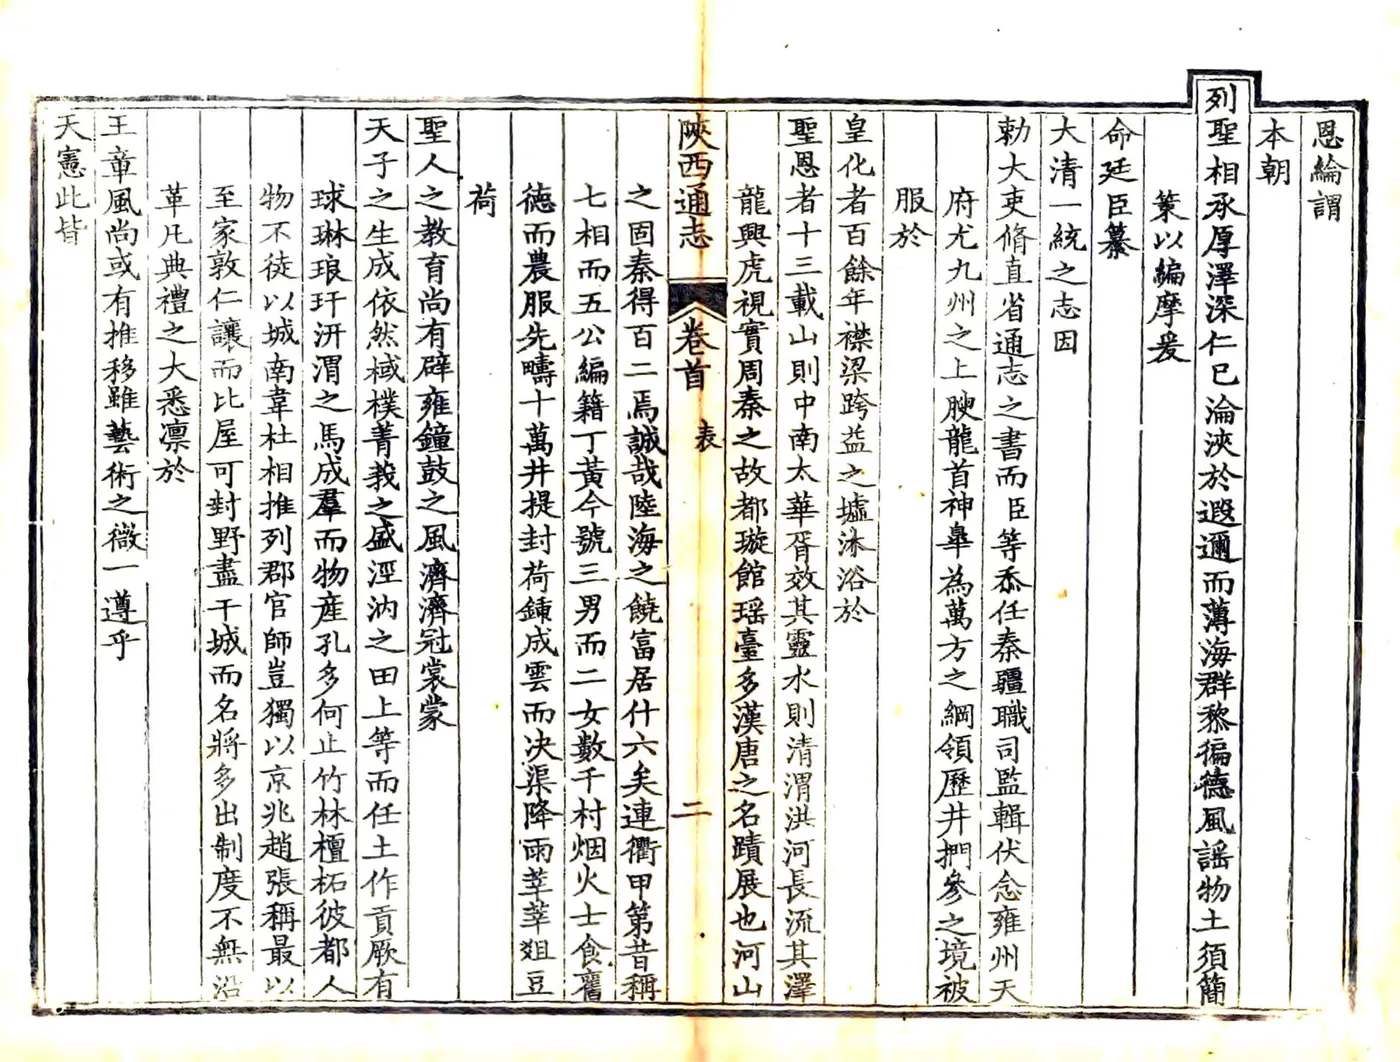 恩綸謂
本朝
列聖相承厚澤深仁已淪浹於遐邇而薄海群黎徧德風謠物土須簡
策以編摩爰
命廷臣纂
大清一統之志因
勅大吏脩直省通志之書而臣等忝任秦疆職司監輯伏念雍州天
府尤九州之上腴龍首神臯為萬方之綱領歷井捫參之境被
服於
皇化者百餘年襟梁跨益之墟沐浴於
聖恩者十三載山則中南太華胥效其靈水則清渭洪河長流其澤
龍興虎視實周秦之故都璇館瑶臺多漢唐之名蹟展也河山
陝西通志 卷首 表 二
之固秦得百二焉誠哉陸海之饒富居什六矣連衢甲第昔稱
七相而五公編籍丁黃今號三男而二女數千村烟火士食舊
德而農服先疇十萬井提封荷鍤成雲而决渠降雨莘莘爼豆
荷
聖人之教育尚有辟雍鐘鼓之風濟濟冠裳蒙
天子之生成依然棫樸菁莪之盛涇汭之田上等而任土作貢厥有
球琳琅玕汧渭之馬成羣而物產孔多何止竹林檀柘彼都人
物不徒以城南韋杜相推列郡官師豈獨以京兆趙張稱最以
至家敦仁讓而比屋可封野盡干城而名將多出制度不無沿
革凡典禮之大悉凛於
王章風尚或有推移雖藝術之微一遵乎
天憲此皆